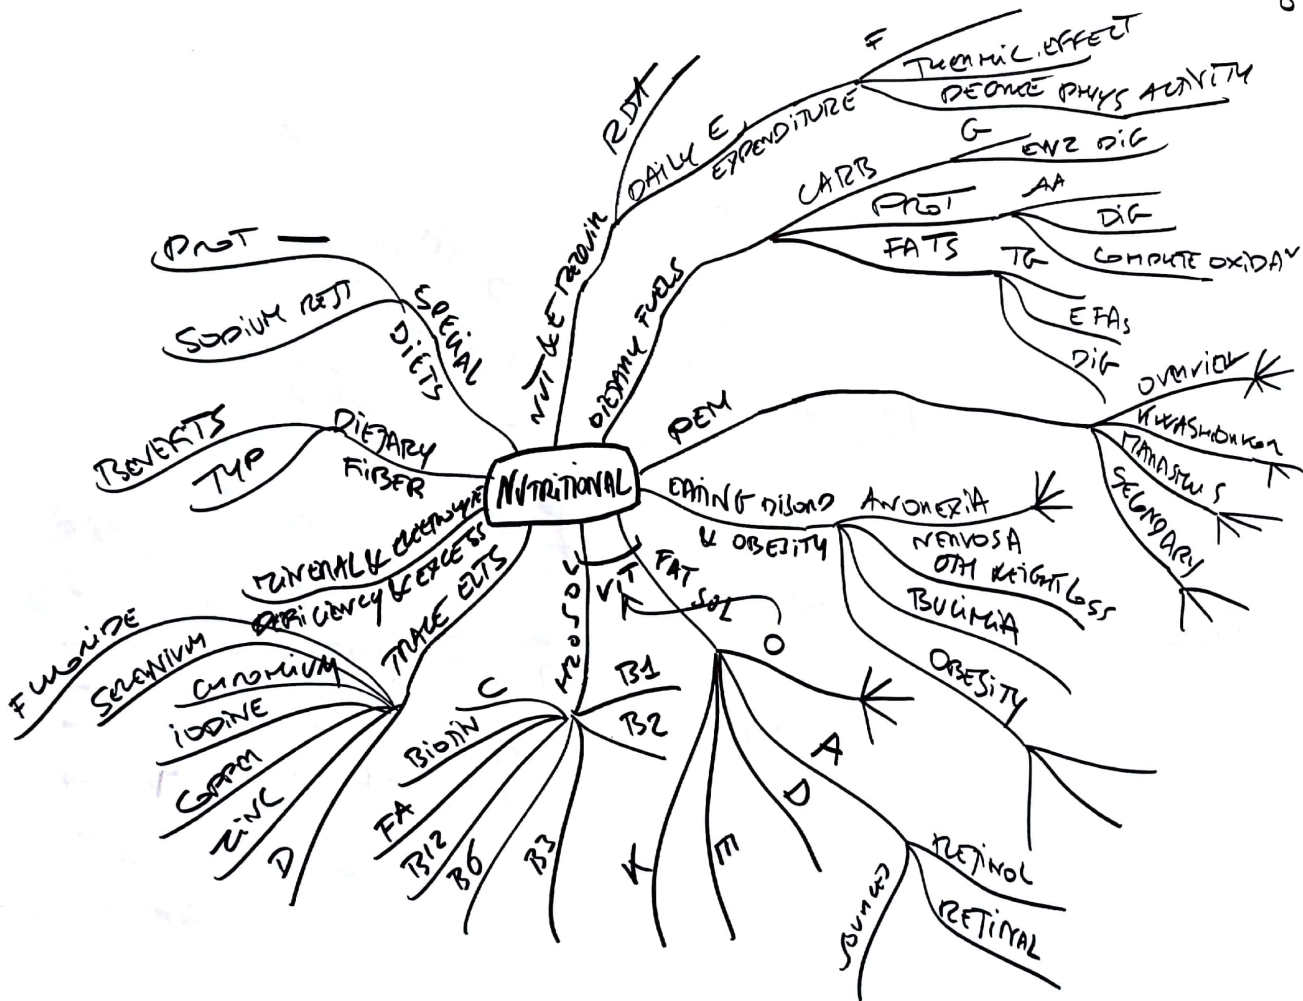 NUTRITIONAL
NUT & E REQUIR
RDA
DAILY E
EXPENDITURE
F
THERMIC EFFECT
DEGREE PHYS ACTIVITY
DIETARY FUELS
CARB
G
ENZ DIG
PROT
AA
DIG
COMPLETE OXIDA
FATS
TG
EFAs
DIG
PEM
OVERVIEW
KWASHIORKOR
MARASMUS
SECONDARY
EATING DISORD
& OBESITY
ANOREXIA
NERVOSA
OTH WEIGHT LOSS
BULIMIA
OBESITY
VIT
FAT
SOL
O
A
RETINOL
RETINAL
SOURCES
D
E
K
H2O SOL
B1
B2
B3
B6
B12
FA
BIOTIN
C
TRACE ELTS
FLUORIDE
SELENIUM
CHROMIUM
IODINE
COPPER
ZINC
D
MINERAL & ELECTROLYTE
DEFICIENCY & EXCESS
DIETARY
FIBER
BENEFITS
TYP
SPECIAL
DIETS
PROT —
SODIUM REST